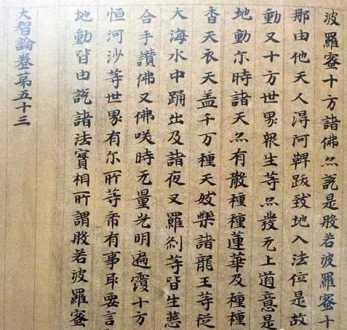 波羅蜜十方諸佛亦說是般若波羅蜜十
那由他天人淂阿鞞跋致地入法位是故
動又十方世界眾生等亦發无上道意是
地動尒時諸天亦有散種種蓮華及種種
香天衣天盖千万種天妓樂諸龍王等從
大海水中踊出及諸夜叉羅刹等皆生慈
合手讚佛又佛咲時无量光明遍覆十方
恒河沙等世界有尒所等希有事取要言
地動皆由說諸法實相所謂般若波羅蜜
大智論卷第五十三